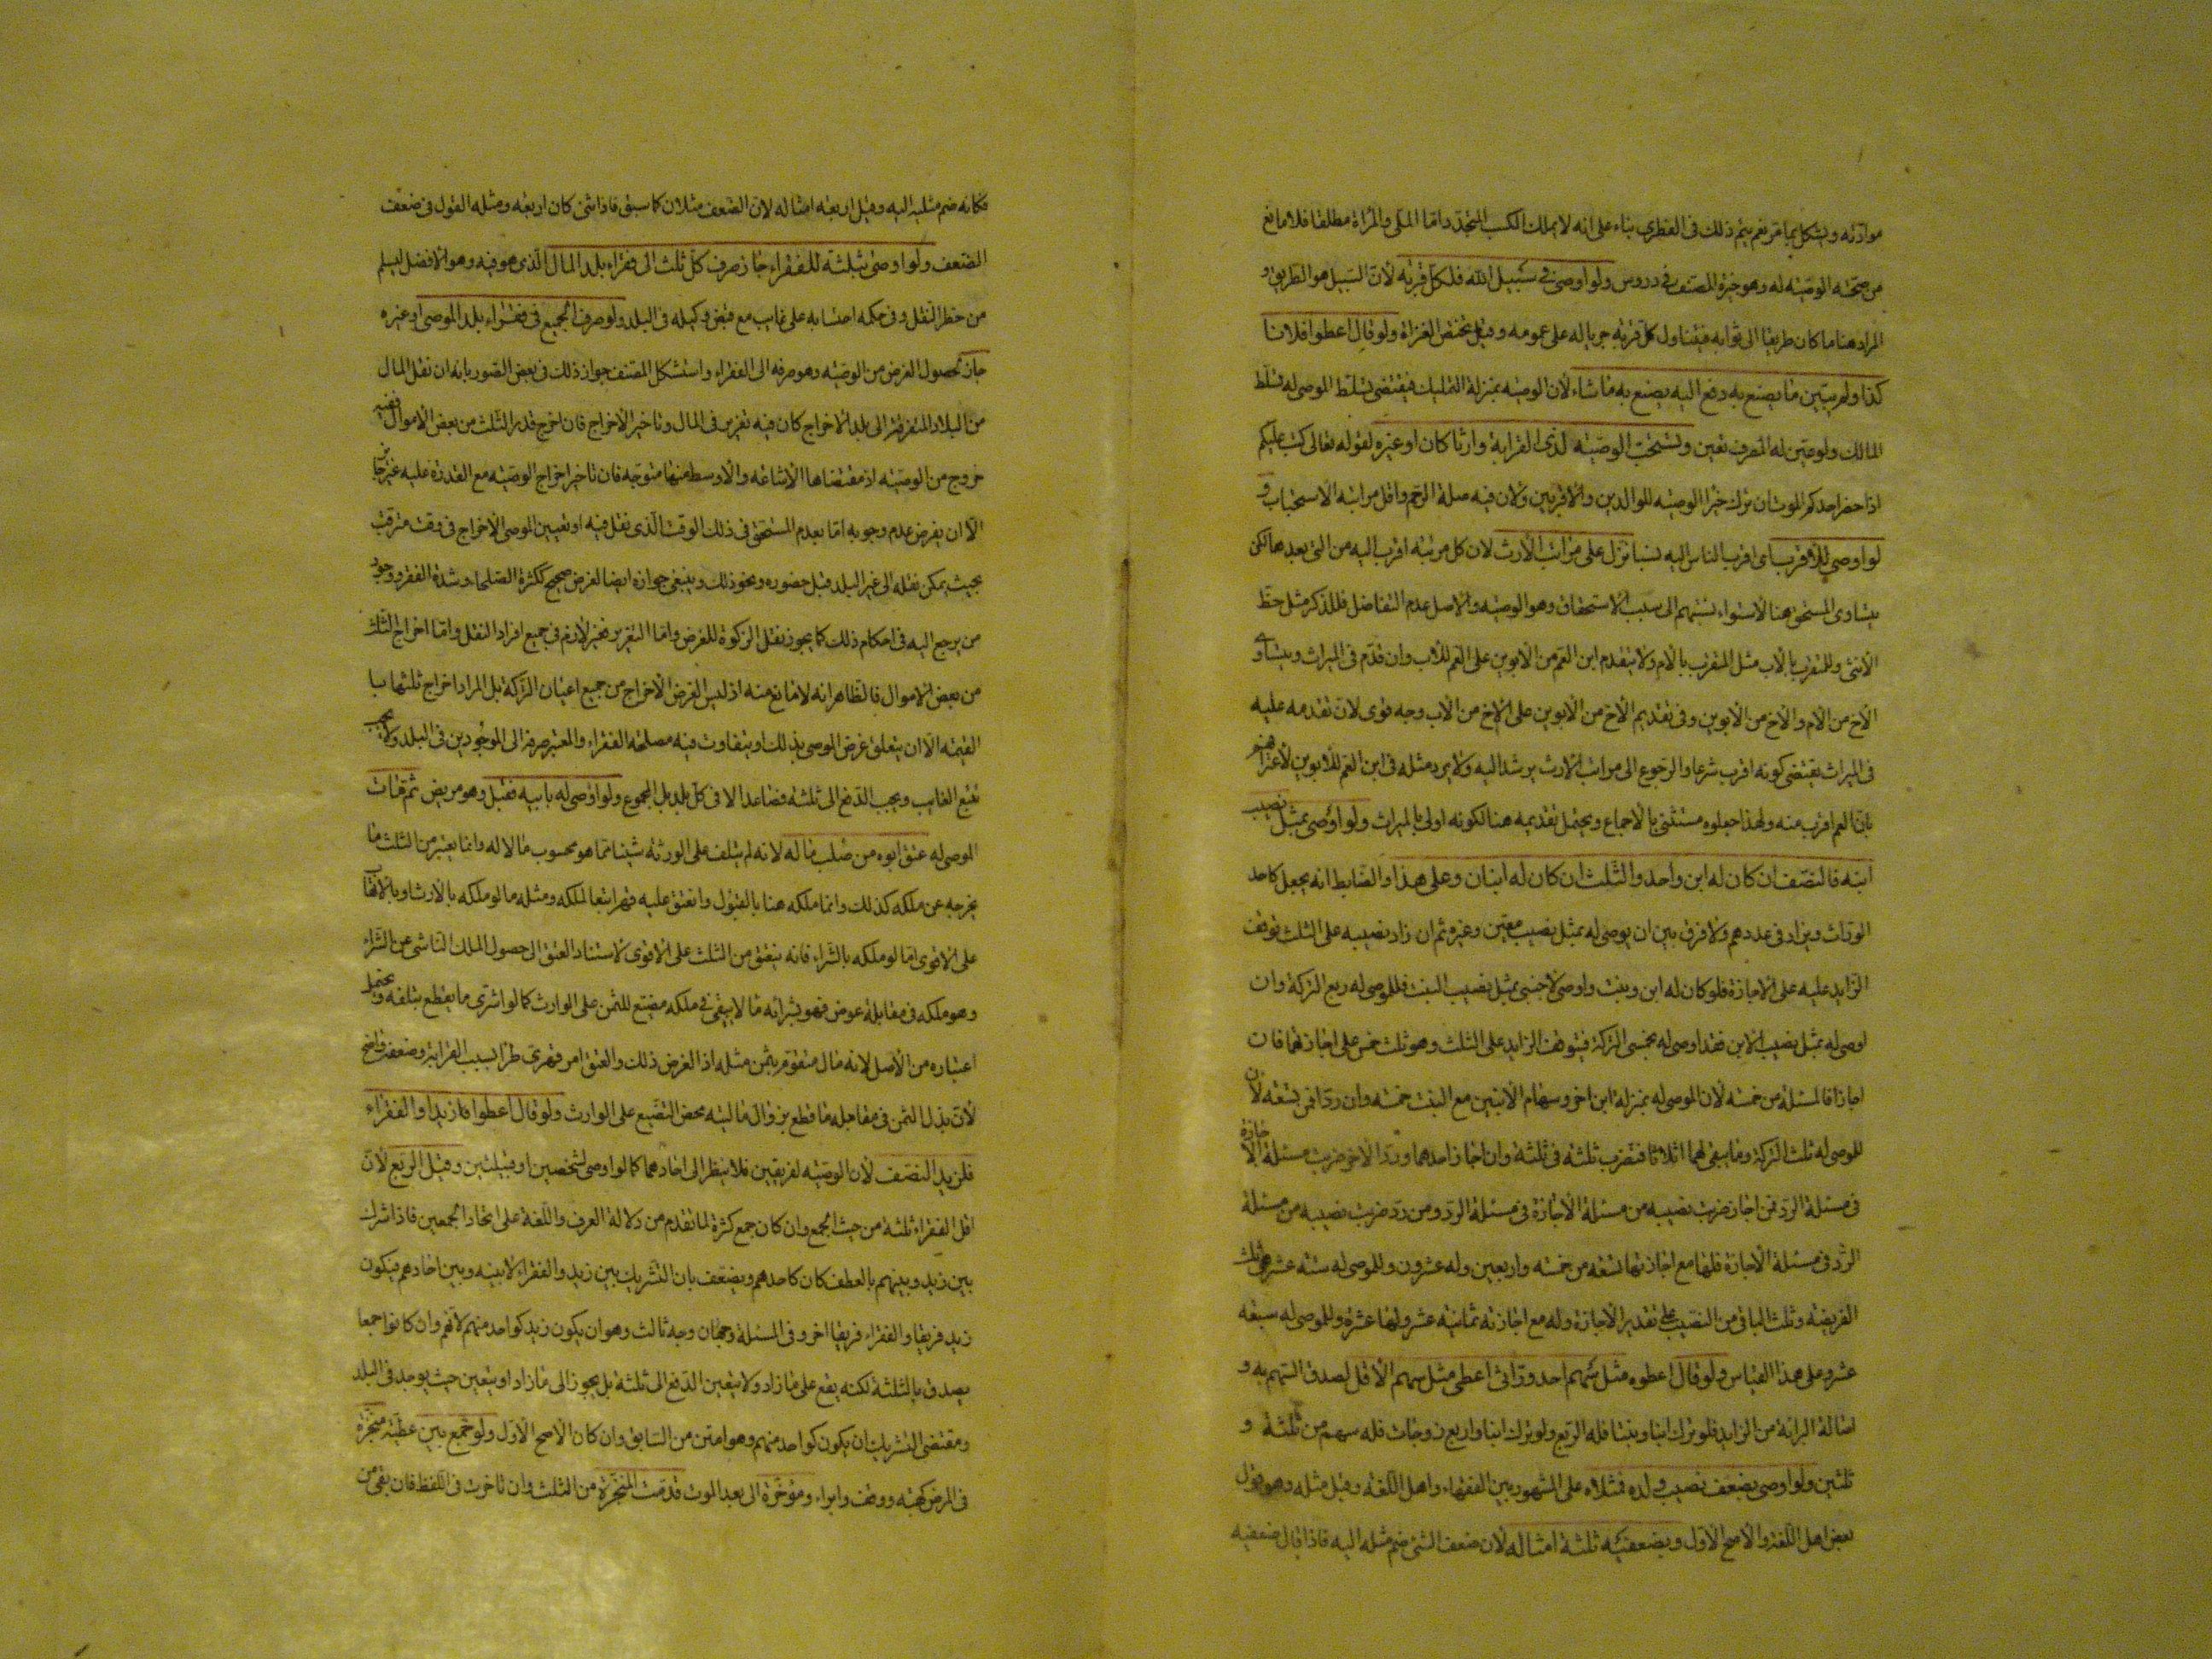 موادته ويشكل بما مر نعم يتم ذلك في الفطري بناء على انه لا يملك الكسب المتجدد واما الملي والمراة مطلقا فلا مانع
من صحة الوصية له وهو خيرة المصنف في دروس ولو اوصى في سبيل الله فلكل قربة لان السبيل هو الطريق و
المراد هنا ما كان طريقا الى ثوابه فيتناول كل قربة جريا له على عمومه وقيل يختص الغزاة ولو قال اعطوا فلانا
كذا ولم يبين ما يصنع به دفع اليه يصنع به ما شاء لان الوصية بمنزلة التمليك فيقتضي تسلط الموصى له تسلط
المالك ولو عين له المصرف تعين وتستحب الوصية لذي القرابة وارثا كان او غيره لقوله تعالى كتب عليكم
اذا حضر احدكم الموت ان ترك خيرا الوصية للوالدين والاقربين ولان فيه صلة الرحم واقل مراتبه الاستحباب و
لو اوصى للاقرب اي اقرب الناس اليه نسبا نزل على مراتب الارث لان كل مرتبة اقرب اليه من التي بعدها لكن
يتساوى المستحق هنا لاستواء نسبتهم الى سبب الاستحقاق وهو الوصية والاصل عدم التفاضل فللذكر مثل حظ
الانثى وللمتقرب بالاب مثل المتقرب بالام ولا يتقدم ابن العم من الابوين على العم للاب وان قدم في الميراث ويتساوى
الاخ من الام والاخ من الابوين وفي تقديم الاخ من الابوين على الاخ من الاب وجه قوي لان تقدمه عليه
في الميراث يقتضي كونه اقرب شرعا والرجوع الى مراتب الارث يرشد اليه ولا يرد مثله في ابن العم للابوين لاعترافهم
بان العم اقرب منه ولهذا جعلوه مستثنى بالاجماع ويحتمل تقديمه هنا لكونه اولى بالميراث ولو اوصى بمثل نصيب
ابنه فالنصف ان كان له ابن واحد والثلث ان كان له ابنان وعلى هذا والضابط انه يجعل كاحد
الوراث ويزاد في عددهم ولا فرق بين ان يوصي له بمثل نصيب معين وغيره ثم ان زاد نصيبه على الثلث توقف
الزايد عليه على الاجازة فلو كان له ابن وبنت واوصى لاجنبي بمثل نصيب البنت فللموصى له ربع التركة وان
اوصى له بمثل نصيب الابن فقد اوصى له بخمسي التركة فيتوقف الزايد على الثلث وهو ثلث خمس على اجازتهما فان
اجازا فالمسئلة من خمسة لان الموصى له بمنزلة ابن اخر وسهام الابنين مع البنت خمسة وان ردا فمن تسعة لان
للموصى له ثلث التركة وما يبقى لهما اثلاثا فتضرب ثلثة في ثلثة وان اجاز احدهما ورد الاخر ضربت مسئلة الاجازة
في مسئلة الرد فمن اجاز ضربت نصيبه من مسئلة الاجازة في مسئلة الرد ومن رد ضربت نصيبه من مسئلة
الرد في مسئلة الاجازة فلها مع اجازتها تسعة من خمسة واربعين وله عشرون وللموصى له ستة عشر هي ثلث
الفريضة وثلث الباقي من النصيب على تقدير الاجازة وله مع اجازته ثمانية عشر ولها عشرة وللموصى له سبعة
عشر وعلى هذا القياس ولو قال اعطوه مثل سهم احد وراثي اعطي مثل سهم الاقل لصدق السهم به و
اصالة البراءة من الزايد فلو ترك ابنا وبنتا فله الربع ولو ترك ابنا واربع زوجات فله سهم من ثلثة و
ثلثين ولو اوصى بضعف نصيب ولده فمثلاه على المشهور بين الفقهاء واهل اللغة وقيل مثله وهو قول
بعض اهل اللغة والاصح الاول وبضعفيه ثلثة امثاله لان ضعف الشئ ضم مثله اليه فاذا قال ضعفيه
فكانه ضم مثليه اليه وقيل اربعة امثاله لان الضعف مثلان كما سبق فاذا ثنى كان اربعة ومثله القول في ضعف
الضعف ولو اوصى بثلثه للفقراء جاز صرف كل ثلث الى فقراء بلد المال الذي هو فيه وهو الافضل ليسلم
من خطر النقل وفي حكمه احتسابه على غايب مع قبض وكيله في البلد ولو صرف الجميع في فقراء بلد الموصي او غيره
جاز لحصول الغرض من الوصية وهو صرفه الى الفقراء واستشكل المصنف جواز ذلك في بعض الصور بانه ان نقل المال
من البلاد المتفرقة الى بلد الاخراج كان فيه تغرير في المال وتاخير الاخراج فان اخرج قدر الثلث من بعض الاموال ففيه
خروج من الوصية اذ مقتضاها الاشاعة والاوسط منها متوجه فان تاخير اخراج الوصية مع القدرة عليه غير جايز
الا ان يفرض عدم وجوبه اما بعدم المستحق في ذلك الوقت الذي نقل فيه او تعيين الموصي الاخراج في وقت مترقب
بحيث يمكن نقله الى غير البلد قبل حضوره ونحو ذلك وينبغي جوازه ايضا لغرض صحيح ككثرة الصلحا وشدة الفقر ووجود
من يرجع اليه في احكام ذلك كما يجوز نقل الزكوة للغرض واما التغرير فغير لازم في جميع افراد النقل واما اخراج الثلث
من بعض الاموال فالظاهر انه لا مانع منه اذ ليس الغرض الاخراج من جميع اعيان التركة بل المراد اخراج ثلثها با
القيمة الا ان يتعلق غرض الموصي بذلك او يتفاوت فيه مصلحة الفقراء والمعتبر صرفه الى الموجودين في البلد ولا يجب
تتبع الغايب ويجب الدفع الى ثلثة فصاعدا لا في كل بلد بل المجموع ولو اوصى له بابيه فقبل وهو مريض ثم مات
الموصى له عتق ابوه من صلب ماله لانه لم يتلف على الورثة شيئا مما هو محسوب مالا له وانما يعتبر من الثلث ما
يخرجه عن ملكه كذلك وانما ملكه هنا بالقبول وانعتق عليه قهرا تبعا لملكه ومثله ما لو ملكه بالارث او بالاتهاب
على الاقوى اما لو ملكه بالشراء فانه ينعتق من الثلث على الاقوى لاستناد العتق الى حصول الملك الناشي عن الشراء
وهو ملكه في مقابلة عوض فهو بشرائه ما لا يبقى في ملكه مضيع للثمن على الوارث كما لو اشترى ما يقطع بتلفه ويحتمل
اعتباره من الاصل لانه مال متقوم بثمن مثله اذ الفرض ذلك والعتق امر قهري طرا بسبب القرابة وضعفه واضح
لان بذل الثمن في مقابلة ما قطع بزوال ماليته محض التضييع على الوارث ولو قال اعطوا زيدا والفقراء
فلزيد النصف لان الوصية لفريقين فلا ينظر الى احادهما كما لو اوصى لشخصين او قبيلتين وقيل الربع لان
اقل الفقراء ثلثة من حيث الجمع وان كان جمع كثرة لما تقدم من دلالة العرف واللغة على اتحاد الجمعين فاذا شرك
بين زيد وبينهم بالعطف كان كاحدهم ويضعف بان التشريك بين زيد والفقراء لا بينه وبين احادهم فيكون
زيد فريقا والفقراء فريقا اخر وفي المسئلة وجه ثالث وهو ان يكون زيد كواحد منهم لانهم وان كانوا جمعا
يصدق بالثلثة لكنه يقع على ما زاد ولا يتعين الدفع الى ثلثة بل يجوز الى ما زاد او يتعين حيث يوجد في البلد
ومقتضى التشريك ان يكون كواحد منهم وهو امتن من السابق وان كان الاصح الاول ولو جمع بين عطية منجزة
في المرض كهبة ووقف وابراء ومؤخرة الى بعد الموت قدمت المنجزة من الثلث وان تاخرت في اللفظ فان بقي من